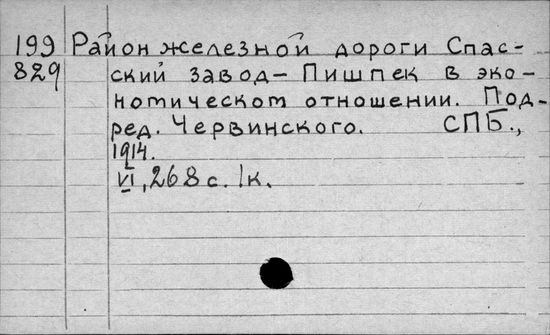 199 Район железной дороги Спас-
829 ский завод - Пишпек в эко-
номическом отношении. Под.
ред. Червинского. СПБ.,
1914.
VI, 268 с. 1к.